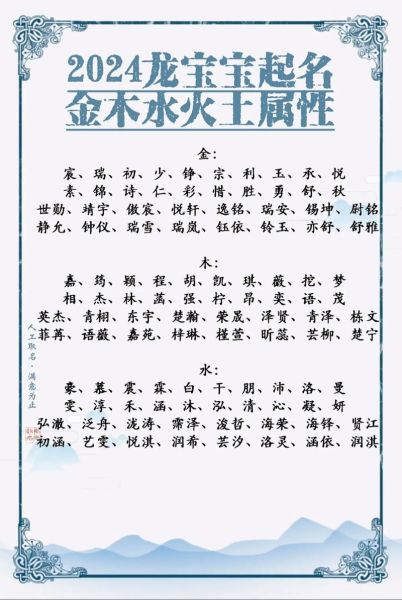 2024龙宝宝起名
金木水火土属性
金：
宸、瑞、初、少、铮、宗、利、玉、承、悦
素、锦、诗、仁、彩、惜、胜、勇、舒、秋
世勋、靖宇、傲宸、悦轩、逸铭、瑞安、锡坤、尉铭
静允、钟仪、瑞雪、瑞岚、钰依、铃玉、亦舒、舒雅
木：
嘉、筠、颖、程、胡、凯、琪、薇、挖、梦
相、杰、林、菡、强、柠、昂、奕、语、茂
英杰、青栩、东宇、楚瀚、荣晟、泽贤、青泽、栋文
菲苒、语薇、嘉苑、梓琳、槿萱、昕蕊、芸柳、楚宁
水：
豪、慕、震、霖、白、干、朋、沛、洛、曼
雯、淳、禾、涵、沐、泓、清、沁、凝、妍
弘澈、泛舟、泷涛、霈泽、浚哲、海荣、海铎、贤江
初涵、艺雯、悦淇、润希、芸汐、洛灵、涵依、润淇
人工取名·满意为止